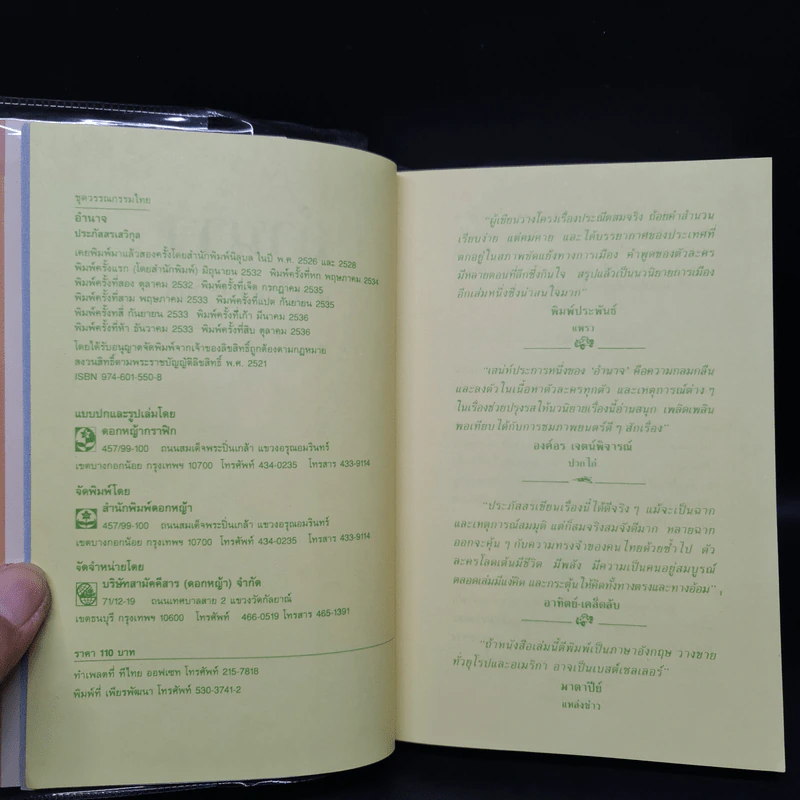 ชุดวรรณกรรมไทย
อำนาจ
ประภัสสรเสวิกุล
เคยพิมพ์มาแล้วสองครั้งโดยสำนักพิมพ์นิลุบล ในปี พ.ศ. 2526 และ 2528
พิมพ์ครั้งแรก (โดยสำนักพิมพ์) มิถุนายน 2532 พิมพ์ครั้งที่หก พฤษภาคม 2534
พิมพ์ครั้งที่สอง ตุลาคม 2532 พิมพ์ครั้งที่เจ็ด กรกฎาคม 2535
พิมพ์ครั้งที่สาม พฤษภาคม 2533 พิมพ์ครั้งที่แปด กันยายน 2535
พิมพ์ครั้งที่สี่ กันยายน 2533 พิมพ์ครั้งที่เก้า มีนาคม 2536
พิมพ์ครั้งที่ห้า ธันวาคม 2533 พิมพ์ครั้งที่สิบ ตุลาคม 2536
โดยได้รับอนุญาตจัดพิมพ์จากเจ้าของลิขสิทธิ์ถูกต้องตามกฎหมาย
สงวนสิทธิ์ตามพระราชบัญญัติลิขสิทธิ์ พ.ศ. 2521
ISBN 974-601-550-8
แบบปกและรูปเล่มโดย
ดอกหญ้ากราฟิก
457/99-100 ถนนสมเด็จพระปิ่นเกล้า แขวงอรุณอมรินทร์
เขตบางกอกน้อย กรุงเทพฯ 10700 โทรศัพท์ 434-0235 โทรสาร 433-9114
จัดพิมพ์โดย
สำนักพิมพ์ดอกหญ้า
457/99-100 ถนนสมเด็จพระปิ่นเกล้า แขวงอรุณอมรินทร์
เขตบางกอกน้อย กรุงเทพฯ 10700 โทรศัพท์ 434-0235 โทรสาร 433-9114
จัดจำหน่ายโดย
บริษัทสามัคคีสาร (ดอกหญ้า) จำกัด
71/12-19 ถนนเทศบาลสาย 2 แขวงวัดกัลยาณ์
เขตธนบุรี กรุงเทพฯ 10600 โทรศัพท์ 466-0519 โทรสาร 465-1391
ราคา 110 บาท
ทำเพลตที่ ทีไทย ออฟเซท โทรศัพท์ 215-7818
พิมพ์ที่ เพียรพัฒนา โทรศัพท์ 530-3741-2
"ผู้เขียนวางโครงเรื่องประณีตสมจริง ถ้อยคำสำนวน
เรียบง่าย แต่คมคาย และได้บรรยากาศของประเทศที่
ตกอยู่ในสภาพขัดแย้งทางการเมือง คำพูดของตัวละคร
มีหลายตอนที่ลึกซึ้งกินใจ สรุปแล้วเป็นนวนิยายการเมือง
อีกเล่มหนึ่งซึ่งน่าสนใจมาก"
พิมพ์ประพันธ์
แพรว
"เสน่ห์ประการหนึ่งของ 'อำนาจ' คือความกลมกลืน
และลงตัวในเนื้อหาตัวละครทุกตัว และเหตุการณ์ต่าง ๆ
ในเรื่องช่วยปรุงรสให้นวนิยายเรื่องนี้อ่านสนุก เพลิดเพลิน
พอเทียบได้กับการชมภาพยนตร์ดี ๆ สักเรื่อง"
องค์อร เจตน์พิจารณ์
ปากไก่
"ประภัสสรเขียนเรื่องนี้ได้ดีจริง ๆ แม้จะเป็นฉาก
และเหตุการณ์สมมุติ แต่ก็สมจริงสมจังดีมาก หลายฉาก
ออกจะคุ้น ๆ กับความทรงจำของคนไทยด้วยซ้ำไป ตัว
ละครโลดเต้นมีชีวิต มีพลัง มีความเป็นคนอยู่สมบูรณ์
ตลอดเล่มมีแง่คิด และกระตุ้นให้คิดทั้งทางตรงและทางอ้อม"
อาทิตย์-เคล็ดลับ
"ถ้าหนังสือเล่มนี้ตีพิมพ์เป็นภาษาอังกฤษ วางขาย
ทั่วยุโรปและอเมริกา อาจเป็นเบสต์เซลเลอร์"
มาดาปีย์
แหล่งข่าว